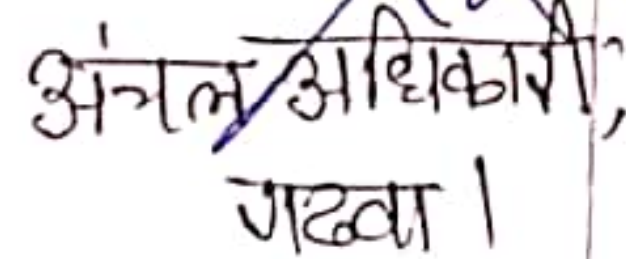 अंचल अधिकारी,
गढवा।